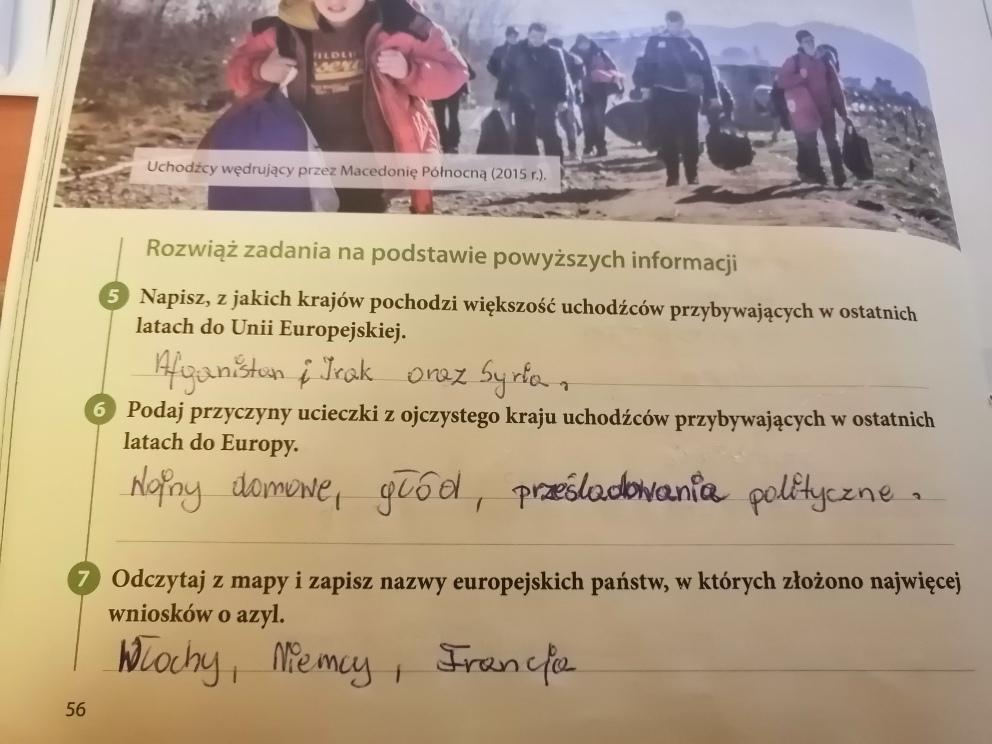 WILDLI
Uchodźcy wędrujący przez Macedonię Północną (2015 r.).
Rozwiąż zadania na podstawie powyższych informacji
5 Napisz, z jakich krajów pochodzi większość uchodźców przybywających w ostatnich
latach do Unii Europejskiej.
Afganistan i Irak oraz Syria.
6 Podaj przyczyny ucieczki z ojczystego kraju uchodźców przybywających w ostatnich
latach do Europy.
Wojny domowe, głód, prześladowania polityczne.
7 Odczytaj z mapy i zapisz nazwy europejskich państw, w których złożono najwięcej
wniosków o azyl.
Włochy, Niemcy, Francja
56